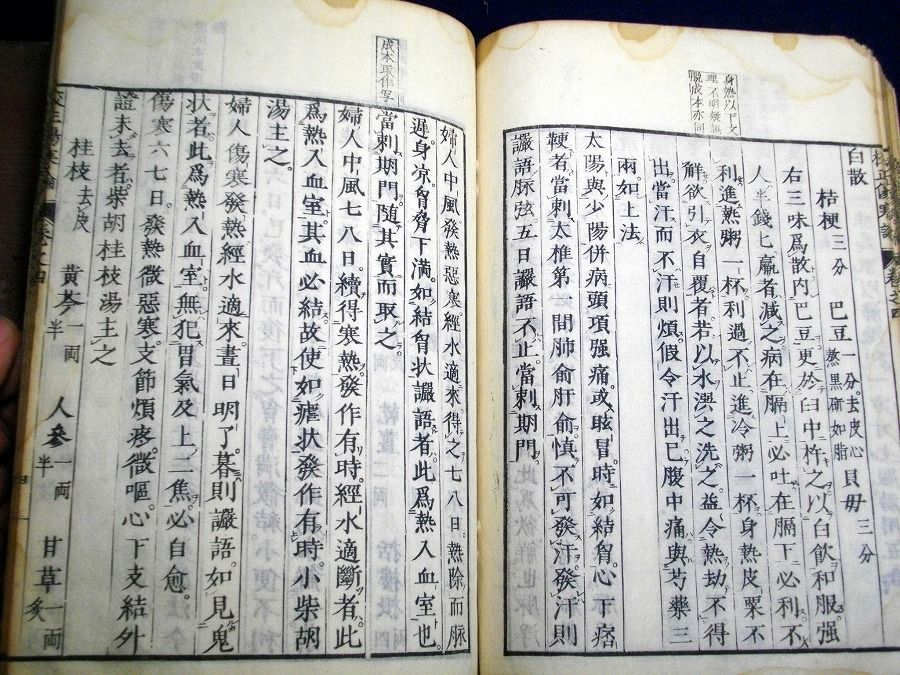 白散
桔梗三分 巴豆一分。去皮心熬黑研如脂 貝母三分
右三味爲散内巴豆更於臼中杵之以白飲和服强
人半錢匕羸者減之病在膈上必吐在膈下必利不
利進熱粥一杯利過不止進冷粥一杯身熱皮粟不
解欲引衣自覆者若以水潠之洗之益令熱劫不得
出當汗而不汗則煩假令汗出已腹中痛與芍藥三
兩如上法
太陽與少陽併病頭項强痛或眩冒時如結胷心下痞
鞕者當刺太椎第一間肺俞肝俞慎不可發汗發汗則
讝語脉弦五日讝語不止當刺期門
身熱以下文
脱成本亦同
婦人中風發熱惡寒經水適來得之七八日熱除而脉
遲身凉胷脅下満如結胷状讝語者此爲熱入血室也
當刺期門隨其實而取之
婦人中風七八日續得寒熱發作有時經水適斷者此
爲熱入血室其血必結故使如瘧状發作有時小柴胡
湯主之
婦人傷寒發熱經水適來晝日明了暮則讝語如見鬼
状者此爲熱入血室無犯胃氣及上二焦必自愈
傷寒六七日發熱微惡寒支節煩疼微嘔心下支結外
證未去者柴胡桂枝湯主之
桂枝去皮 黄芩一両半 人参一両半 甘草一両炙